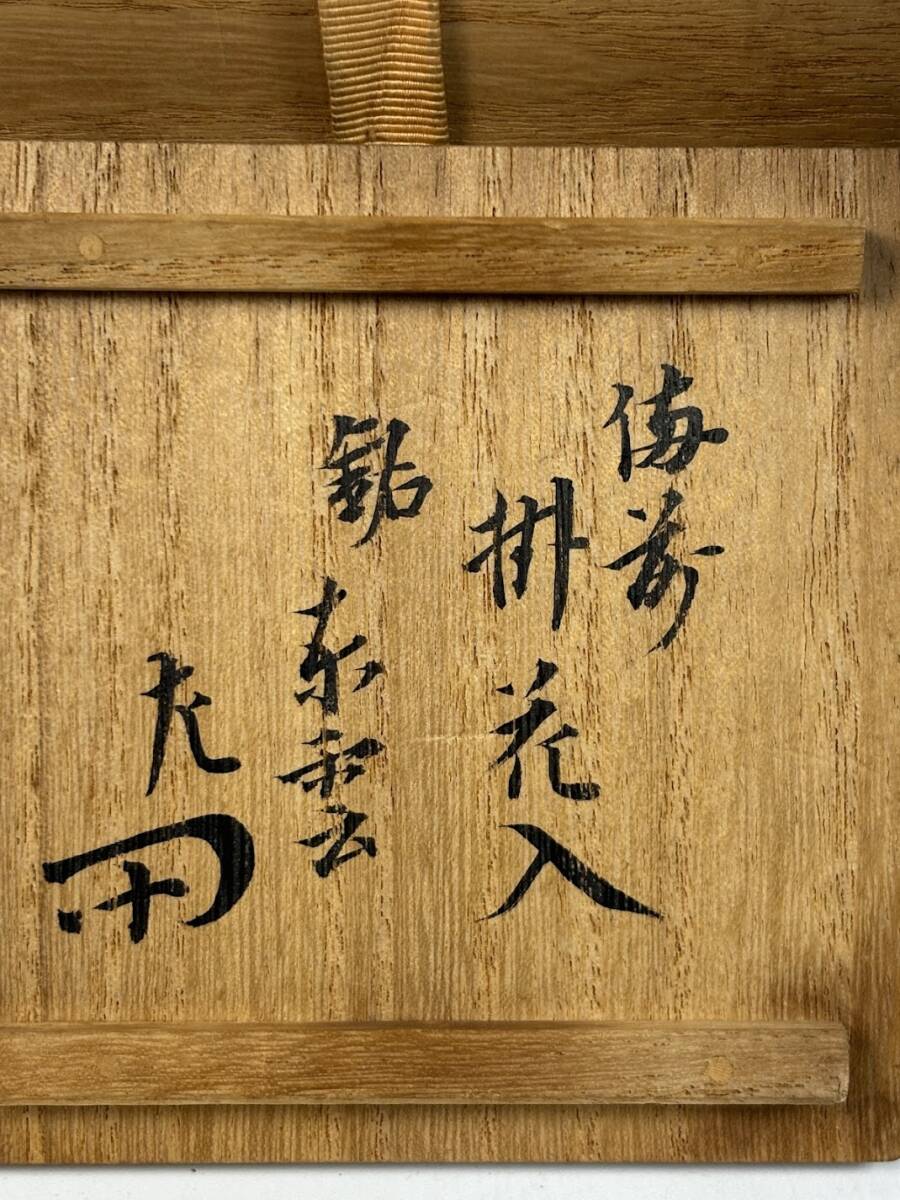 備前
掛花入
銘 東雲
左